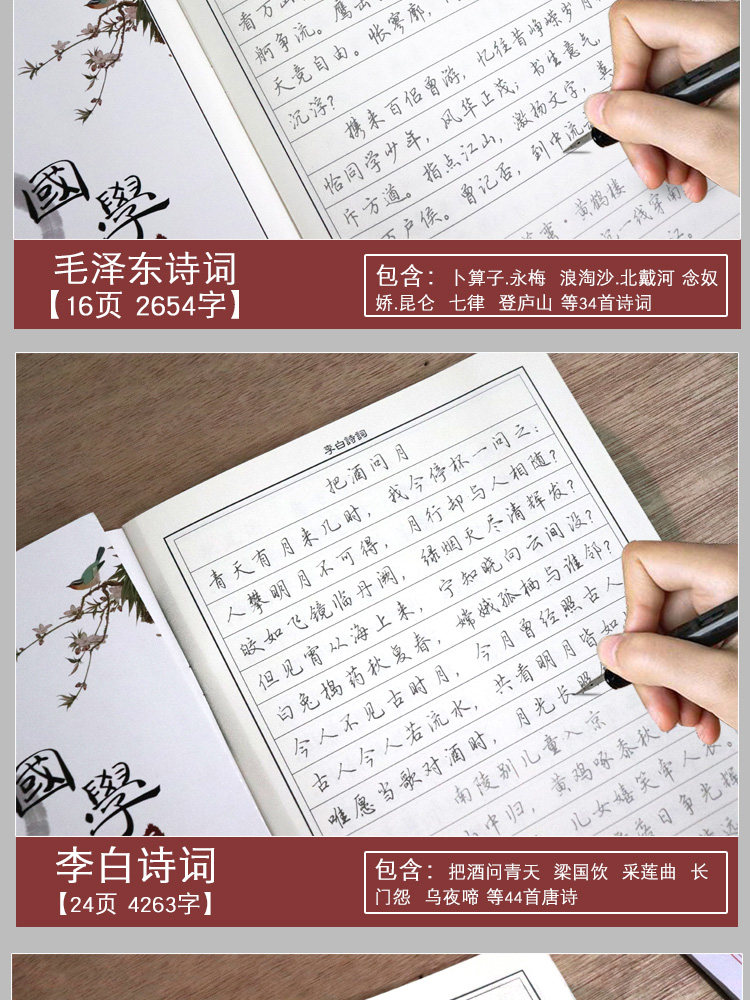 看万山
舸争流。鹰击
天竞自由。怅寥廓,
沉浮?
携来百侣曾游, 忆往昔峥嵘岁月
恰同学少年, 风华正茂; 书生意气,
斥方道。指点江山, 激扬文字, 粪
万户侯。曾记否, 到中流
黄鹤楼
一线穿南
江。
國學
毛泽东诗词
【16页 2654字】
包含: 卜算子.永梅 浪淘沙.北戴河 念奴
娇.昆仑 七律 登庐山 等34首诗词
李白詩詞
把酒问月
青天有月来几时, 我今停杯一问之:
人攀明月不可得, 月行却与人相随?
皎如飞镜临丹阙, 绿烟灭尽清辉发?
但见宵从海上来, 宁知晓向云间没?
白兔捣药秋复春, 嫦娥孤栖与谁邻?
今人不见古时月, 今月曾经照古人
古人今人若流水, 共看明月皆如
唯愿当歌对酒时, 月光长照
南陵别儿童入京
山中归, 黄鸡啄黍秋
儿女嬉笑牵人衣。
落日争光辉
國學
李白诗词
【24页 4263字】
包含: 把酒问青天 梁国饮 采莲曲 长
门怨 乌夜啼 等44首唐诗